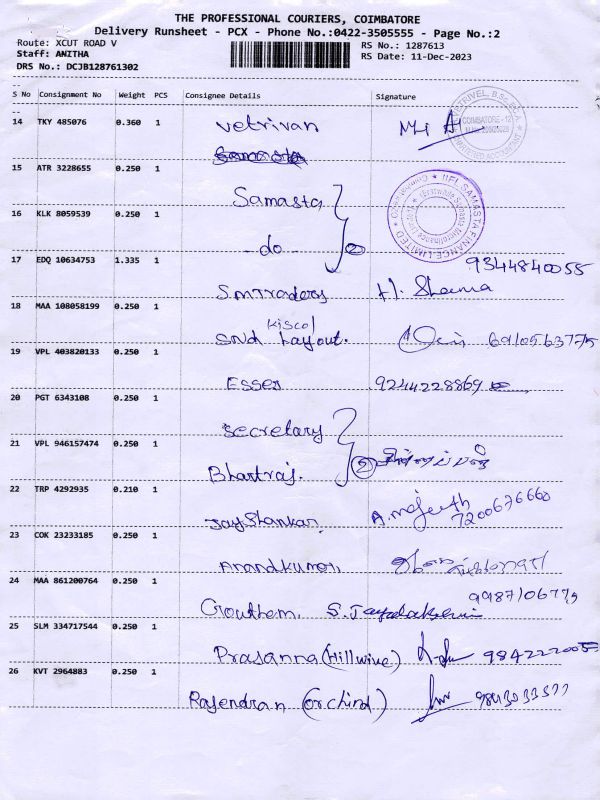 THE PROFESSIONAL COURIERS, COIMBATORE
Delivery Runsheet - PCX - Phone No.:0422-3505555 - Page No.:2
Route: XCUT ROAD V
RS No.: 1287613
Staff: ANITHA
RS Date: 11-Dec-2023
DRS No.: DCJB128761302
S No Consignment No Weight PCS Consignee Details Signature
14 TKY 485076 0.360 1 Vetrivan
15 ATR 3228655 0.250 1 Samasta
16 KLK 8059539 0.250 1 do 2
IIFL SAMASTA FINANCE LIMITED
17 EDQ 10634753 1.335 1 S.M Traders H. Sharma 9344840055
18 MAA 108058199 0.250 1 SND Layout.
19 VPL 403820133 0.250 1 Esser 9244228869
20 PGT 6343108 0.250 1 Secretary
21 VPL 946157474 0.250 1 Bhartraj. 2
22 TRP 4292935 0.210 1 Jayshankar 7200676660
23 COK 23233185 0.250 1 Anandkumar
24 MAA 861200764 0.250 1 Gouthem.
25 SLM 334717544 0.250 1 Prasanna (Hillwive)
26 KVT 2964883 0.250 1 Rajendran (orchird)